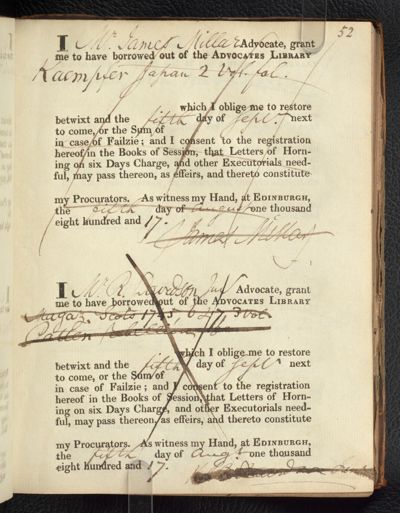 52
I Mr. James Millar Advocate, grant
me to have borrowed out of the ADVOCATES LIBRARY
Kaempfer Japan 2 Vol. fol.
which I oblige me to restore
betwixt and the fifth day of Sept. next
to come, or the Sum of
in case of Failzie; and I consent to the registration
hereof in the Books of Session, that Letters of Horn-
ing on six Days Charge, and other Executorials need-
ful, may pass thereon, as effeirs, and thereto constitute
my Procurators. As witness my Hand, at EDINBURGH,
the fifth day of August one thousand
eight hundred and 17.
James Millar
I Mr. R. Davidson Advocate, grant
me to have borrowed out of the ADVOCATES LIBRARY
Magaz. Scots 1745, 6, 47, 3 vol.
which I oblige me to restore
betwixt and the fifth day of Sept. next
to come, or the Sum of
in case of Failzie; and I consent to the registration
hereof in the Books of Session, that Letters of Horn-
ing on six Days Charge, and other Executorials need-
ful, may pass thereon, as effeirs, and thereto constitute
my Procurators. As witness my Hand, at EDINBURGH,
the fifth day of Augt. one thousand
eight hundred and 17.